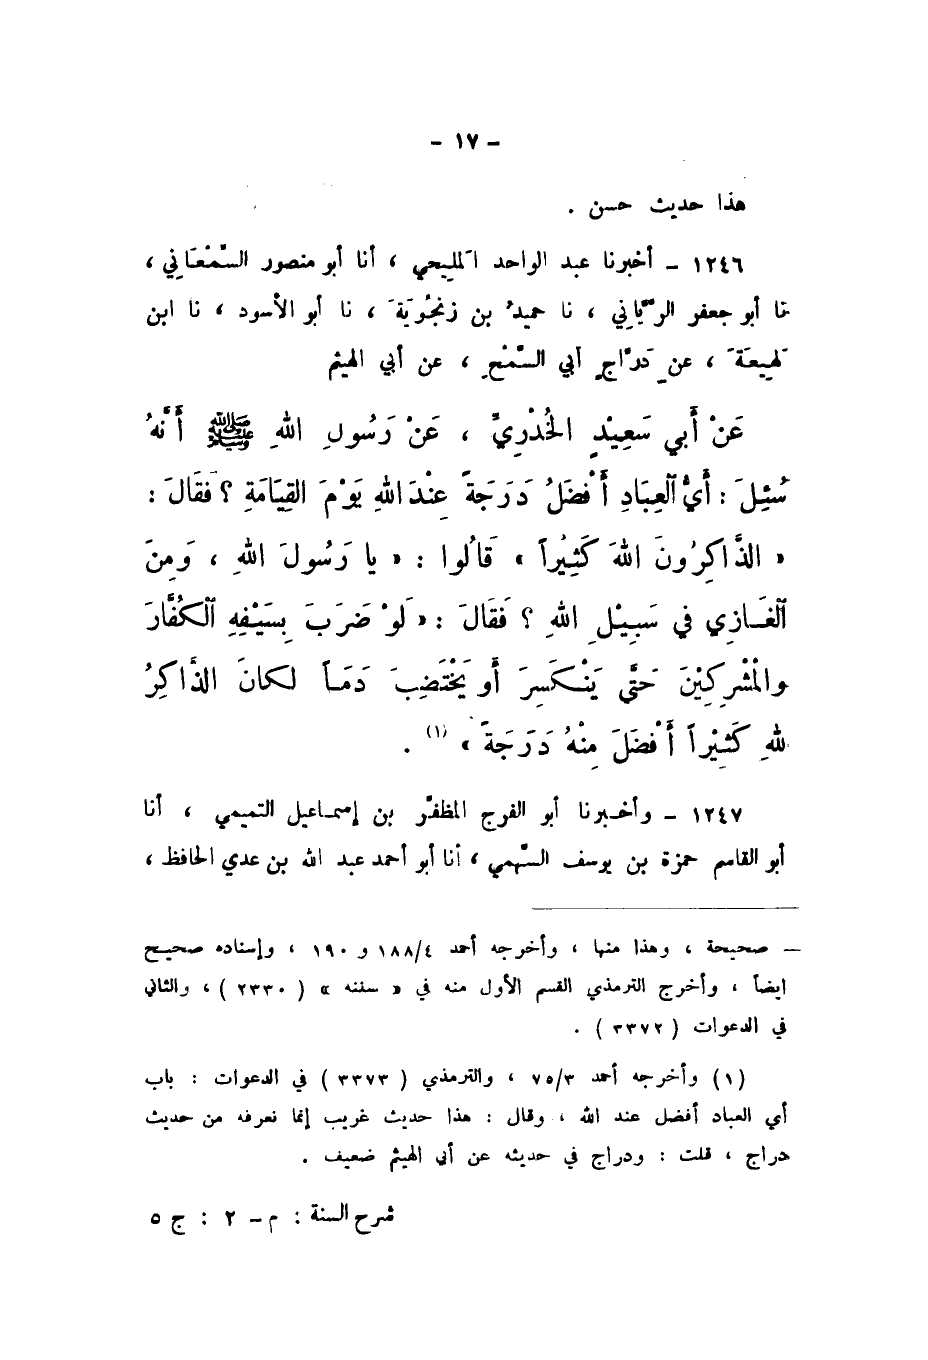 - ١٧ -
هذا حديث حسن .
١٢٤٦ - أخبرنا عبد الواحد المَليحي ، أنا أبو منصور السَّمْعَاني ،
نا أبو جعفر الرَّيَّاني ، نا حميدُ بن زنجُويَةَ ، نا أبو الأسود ، نا ابن
لَهيعَةَ ، عن دَرَّاجٍ أبي السَّمْحِ ، عن أبي الهيثم
عَنْ أَبي سَعِيْدٍ الخُدْرِيِّ ، عَنْ رَسُولِ اللهِ ﷺ أَنَّهُ
سُئِلَ : أَيُّ العِبَادِ أَفْضَلُ دَرَجَةً عِنْدَ اللهِ يَوْمَ القِيَامَةِ ؟ فَقَالَ :
« الذَّاكِرُونَ اللهَ كَثِيْراً » قَالُوا : « يا رَسُولَ اللهِ ، وَمِنَ
الغَـازِي في سَبِيْلِ اللهِ ؟ فَقَالَ : « لَوْ ضَرَبَ بِسَيْفِهِ الكُفَّارَ
والمُشْرِكِيْنَ حَتَّى يَنْكَسِرَ أَو يَخْتَضِبَ دَمَـاً لكانَ الذَّاكِرُ
للهِ كَثِيْراً أَفْضَلَ مِنْهُ دَرَجَةً » (١) .
١٢٤٧ - وأخـبرنا أبو الفرج المظفَّر بن إسماعيل التميمي ، أنا
أبو القاسم حمزة بن يوسف السَّهمي ، أنا أبو أحمد عبد الله بن عدي الحافظ ،
— صحيحة ، وهذا منها ، وأخرجه أحمد ١٨٨/٤ و ١٩٠ ، وإسناده صحيح
ايضاً ، وأخرج الترمذي القسم الأول منه في « سننه » ( ٢٣٣٠ ) ، والثاني
في الدعوات ( ٣٣٧٢ ) .
(١) وأخرجه أحمد ٧٥/٣ ، والترمذي ( ٣٣٧٣ ) في الدعوات : باب
أي العباد أفضل عند الله ، وقال : هذا حديث غريب إنما نعرفه من حديث
دراج ، قلت : ودراج في حديثه عن أبي الهيثم ضعيف .
شرح السنة : م - ٢ : ج ٥